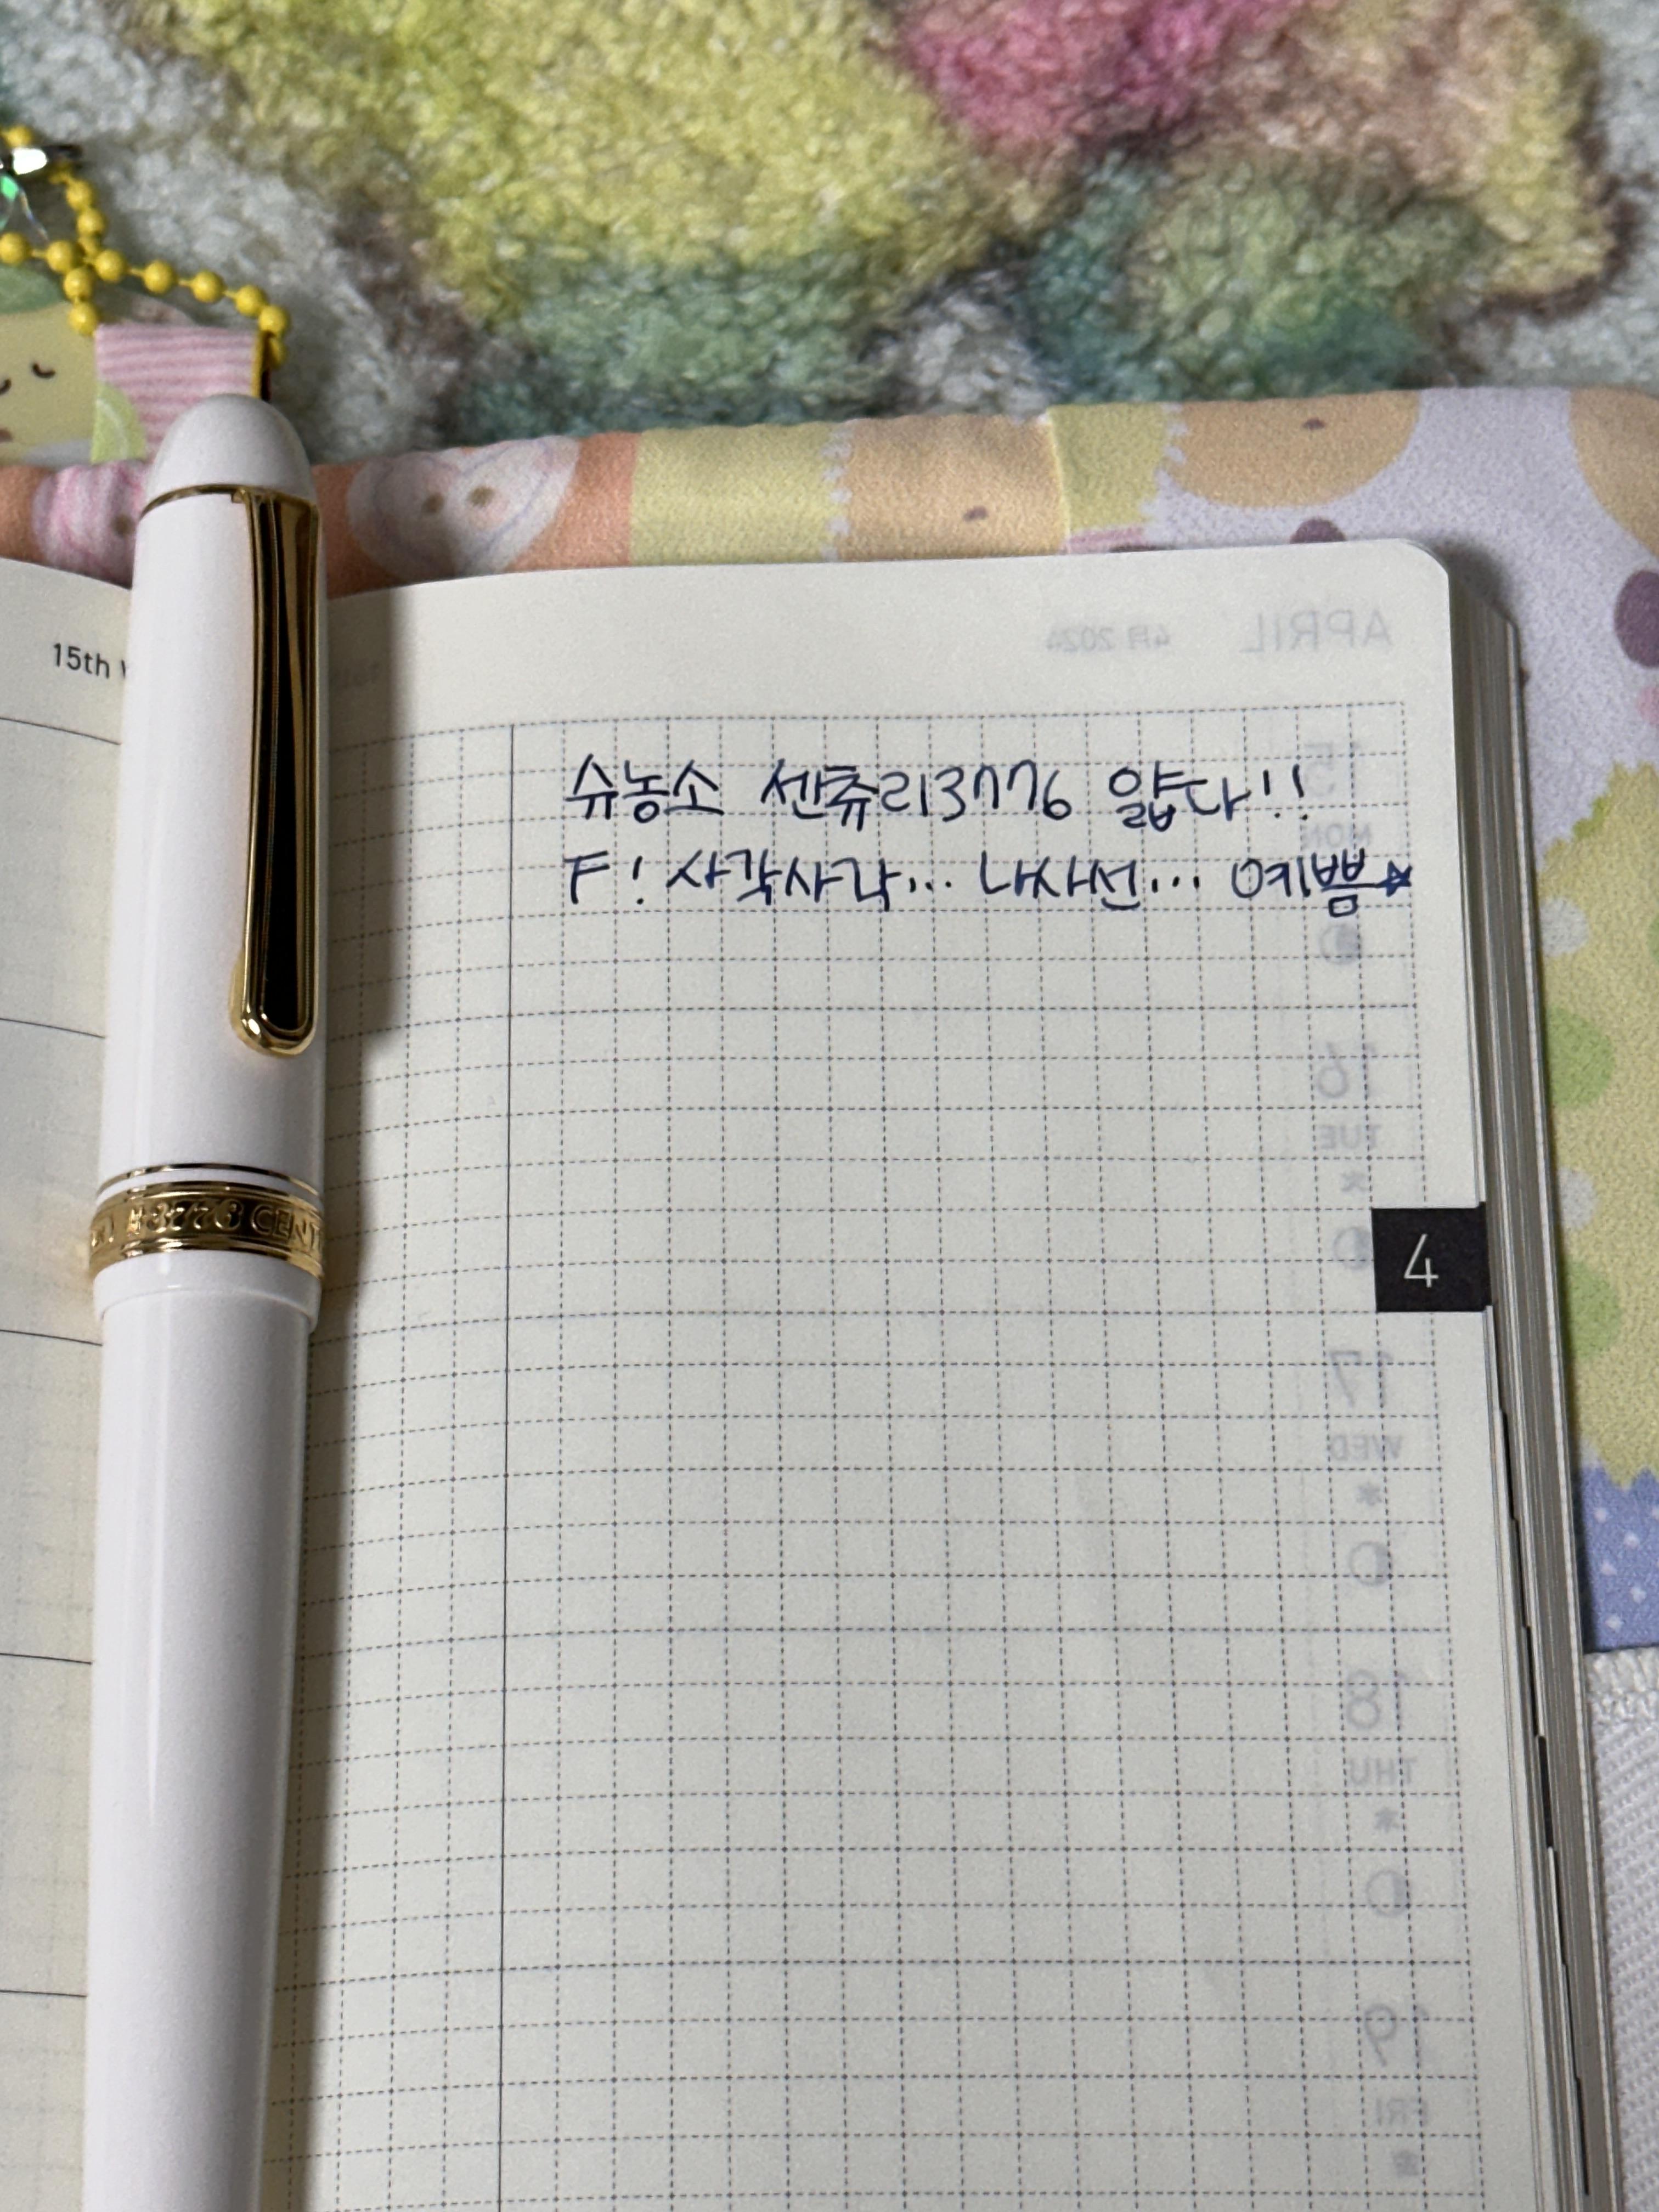 슈농소 센츄리3776 얇다!!
F! 사각사각... 나사선... 예쁨★
15th
#3776 CENT
4
APRIL 4月 2024
15
MON
16
TUE
17
WED
18
THU
19
FRI